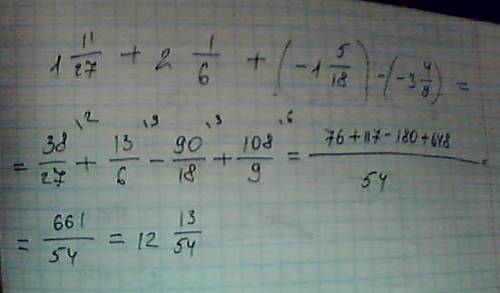 1 11/27 + 2 1/6 + (-1 5/18) - (-3 4/9) =
= 38/27 ,2 + 13/6 ,9 - 90/18 ,3 + 108/9 ,6 = 76 + 117 - 180 + 648 / 54
= 661/54 = 12 13/54